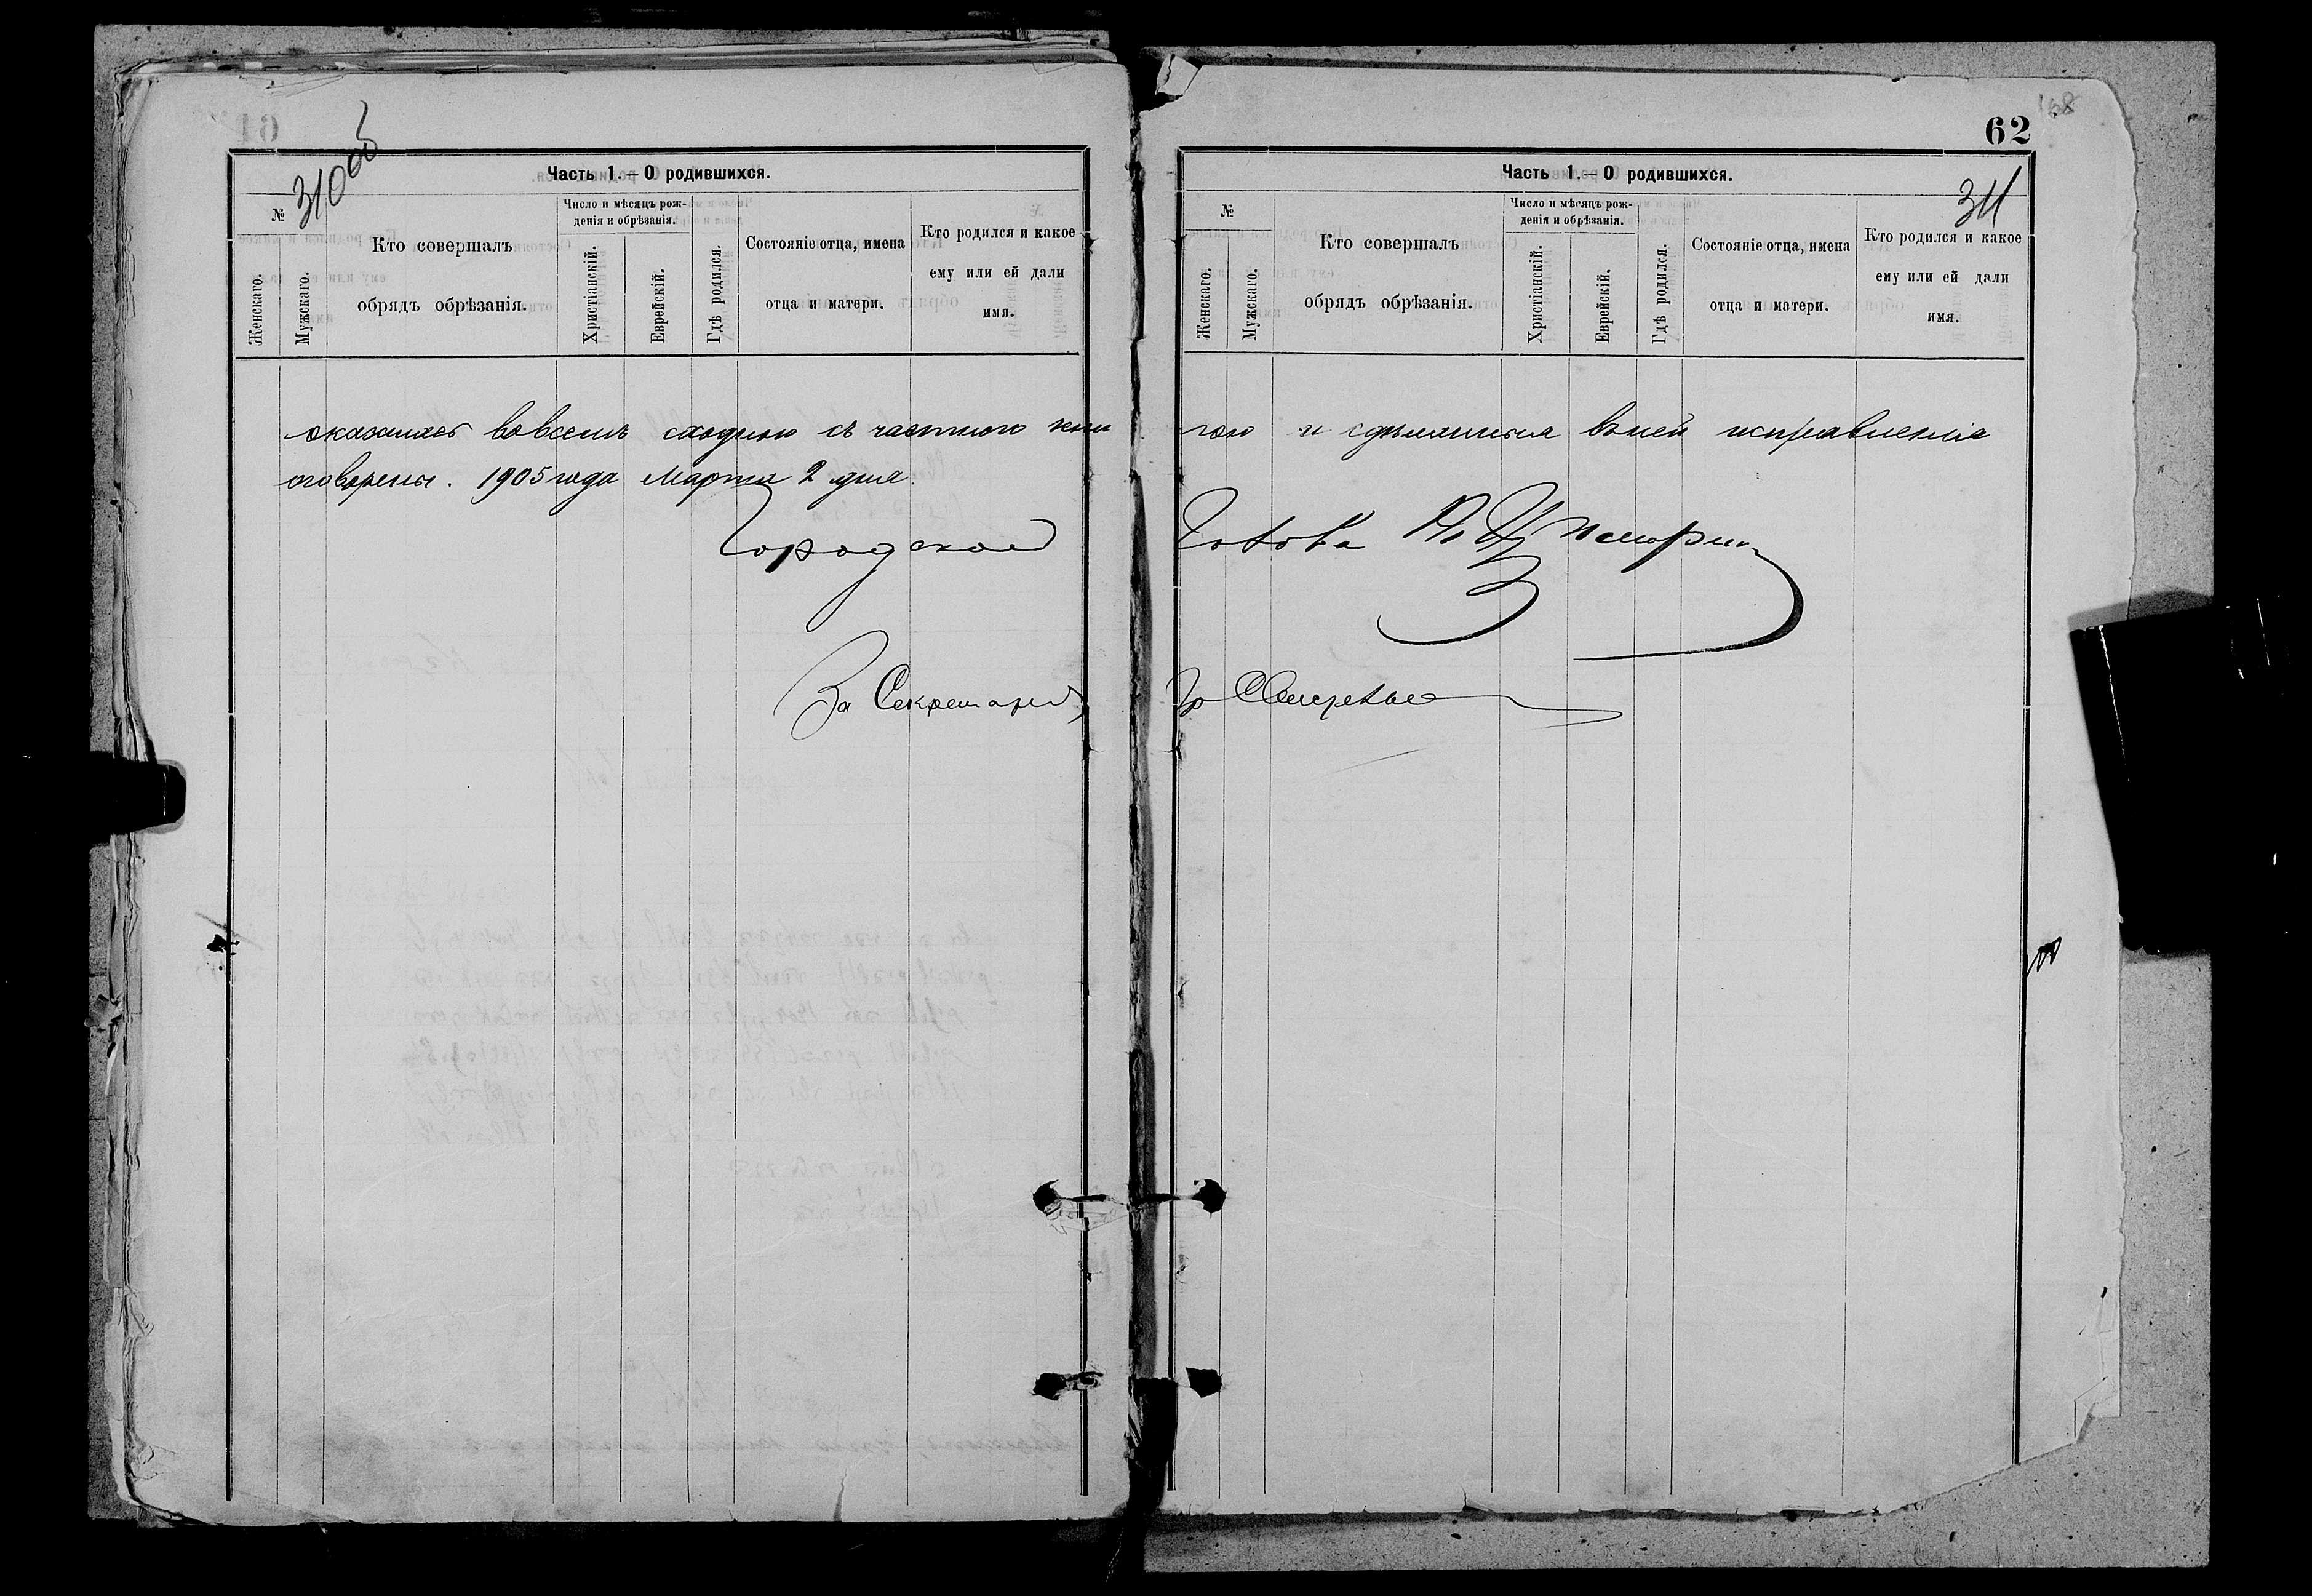 310 об
Часть 1.— О родившихся.
№
Женскаго.
Мужскаго.
Кто совершалъ
обрядъ обрѣзанія.
Число и мѣсяцъ рож-
денія и обрѣзанія.
Христіанскій.
Еврейскій.
Гдѣ родился.
Состояніе отца, имена
отца и матери.
Кто родился и какое
ему или ей дали
имя.
62
168
Часть 1.— О родившихся.
311
№
Женскаго.
Мужскаго.
Кто совершалъ
обрядъ обрѣзанія.
Число и мѣсяцъ рож-
денія и обрѣзанія.
Христіанскій.
Еврейскій.
Гдѣ родился.
Состояніе отца, имена
отца и матери.
Кто родился и какое
ему или ей дали
имя.
оказалась вовсемъ сходною съ частною кни гою и сдѣланныя вней исправленія
оговорены. 1905 года Марта 2 дня.
Городской Голова
За Секретаря